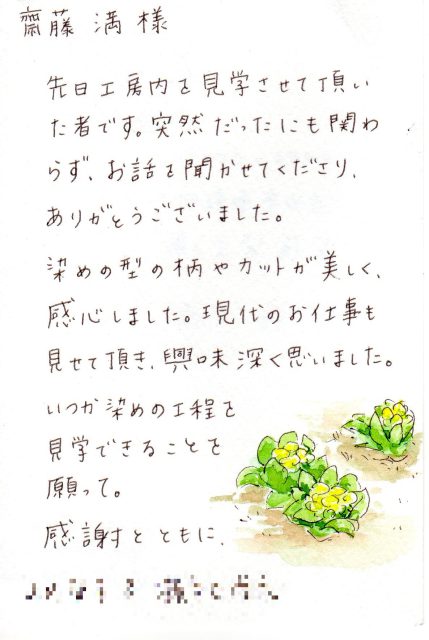 齋藤 満 様
先日工房内を見学させて頂い
た者です。突然だったにも関わ
らず、お話を聞かせてくださり、
ありがとうございました。
染めの型の柄やカットが美しく、
感心しました。現代のお仕事も
見せて頂き、興味深く思いました。
いつか染めの工程を
見学できることを
願って。
感謝すとともに、